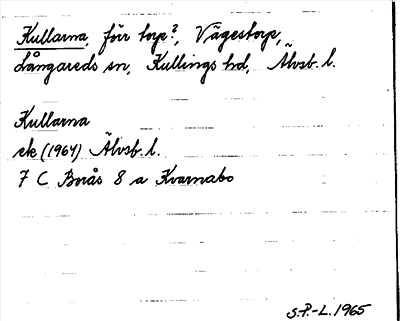 Kullarna, förr torp?, Vägestorp,
Långareds sn, Kullings hd, Älvsb. l.
Kullarna
ek (1964) Älvsb. l.
7 C Borås 8 a Kvarnabo
S.P.-L. 1965